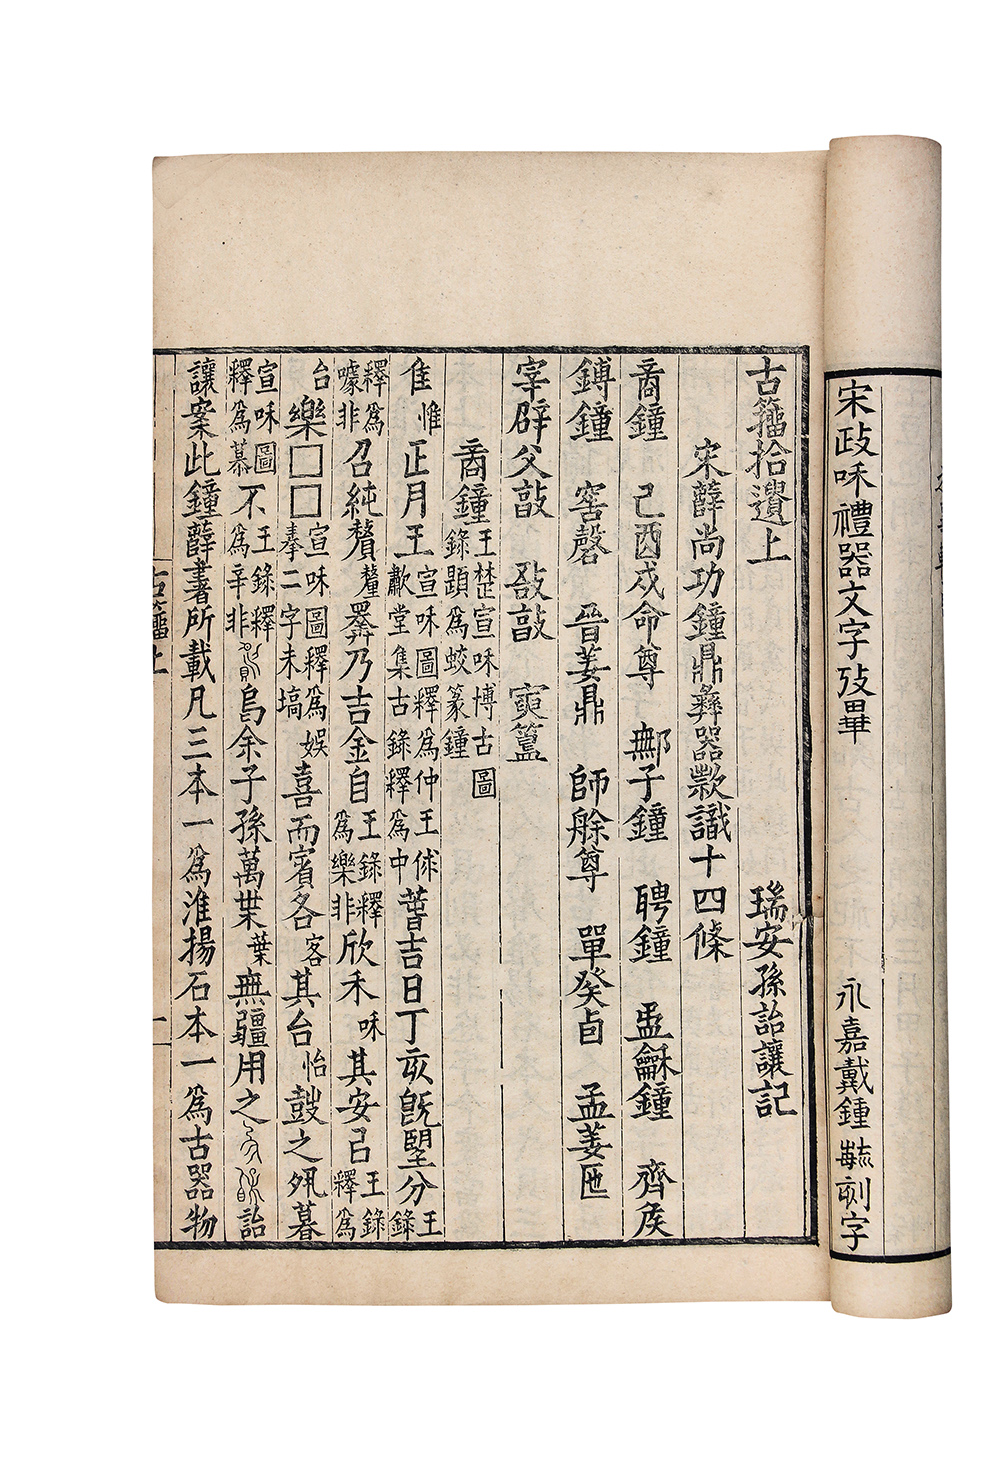 宋政咊禮器文字攷畢
永嘉戴鍾毓刻字
古籀拾遺上　瑞安孫詒讓記
宋薛尚功鐘鼎彝器款識十四條
商鐘　己酉戍命尊　鄦子鐘　聘鐘　盄龢鐘　齊矦
鎛鐘　窖磬　晉姜鼎　師艅尊　單癸卣　孟姜匜
宰辟父敦　敔敦　寅簠
商鐘王楚宣咊博古圖錄題爲蛟篆鐘
隹惟正月王宣咊圖釋爲仲王俅歗堂集古錄釋爲中萅吉日丁亥旣朢分王錄
釋爲噱非召純釐釐羃乃吉金自王錄釋爲樂非欣禾咊其安㠯王錄釋爲
台樂□□宣咊圖釋爲娛搴二字未塙喜而賓各客其台怡鼓之夙暮
宣咊圖釋爲慕不王錄釋爲辛非烏余子孫萬枼葉無疆用之詒
讓案此鐘薛書所載凡三本一爲淮揚石本一爲古器物
古籀上
一